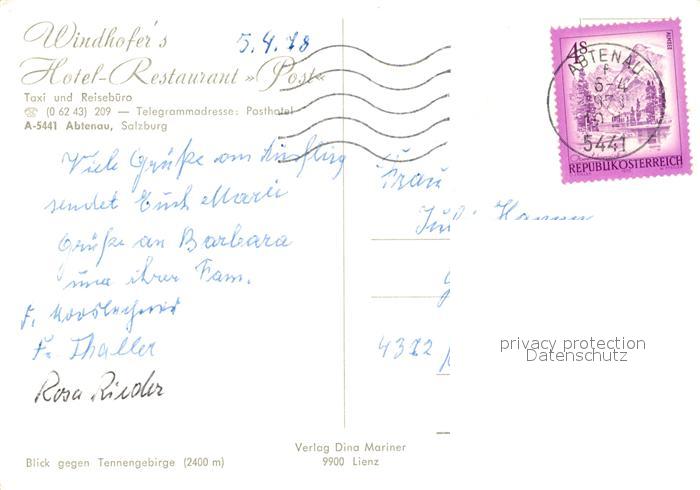 Windhofer's
Hotel-Restaurant »Post«
Taxi und Reisebüro
☎ (0 62 43) 209 — Telegrammadresse: Posthotel
A-5441 Abtenau, Salzburg
5.4.78
Viele Grüße am Ausflug
sendet Euch Marie
Grüße an Barbara
und ihrer Fam.
F.
Fr. Thaller
Rosa Rieder
Blick gegen Tennengebirge (2400 m)
Verlag Dina Mariner
9900 Lienz
4S
ALMSEE
REPUBLIK ÖSTERREICH
ABTENAU
5441
Frau
4312
privacy protection
Datenschutz